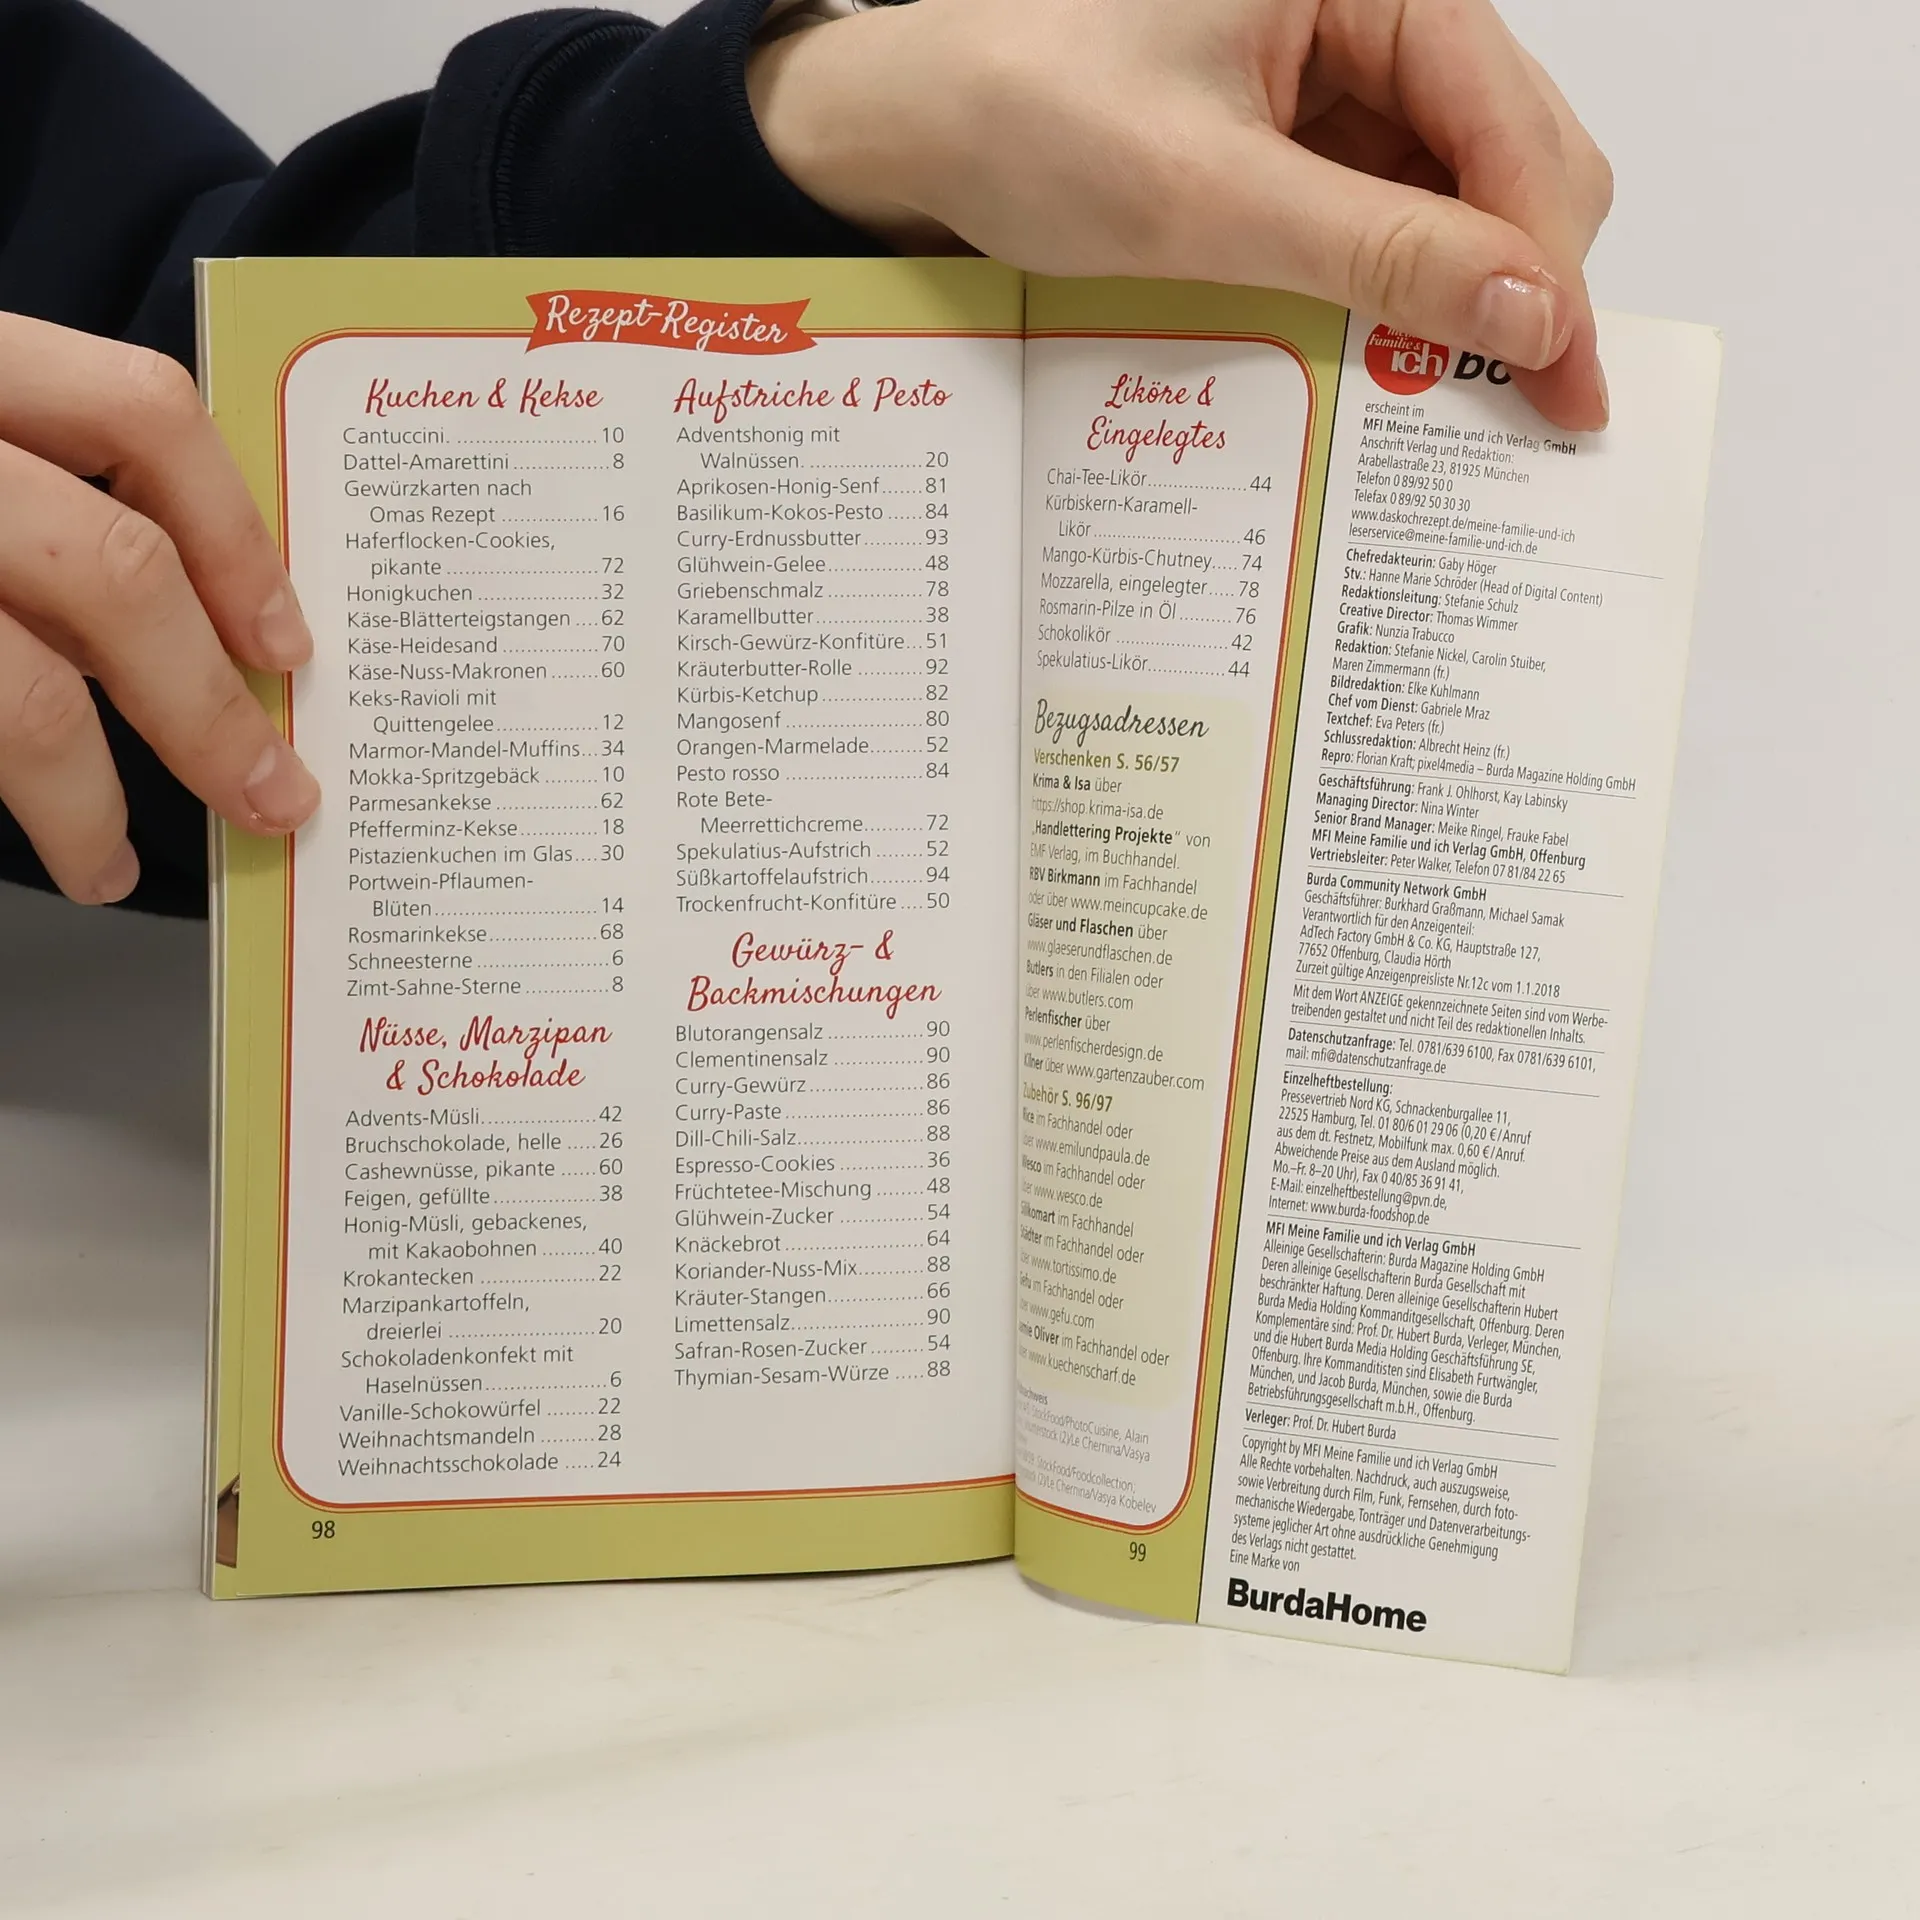 Rezept-Register
Kuchen & Kekse
Cantuccini. ...................... 10
Dattel-Amarettini ............... 8
Gewürzkarten nach
Omas Rezept ............... 16
Haferflocken-Cookies,
pikante ........................ 72
Honigkuchen ................... 32
Käse-Blätterteigstangen .... 62
Käse-Heidesand ............... 70
Käse-Nuss-Makronen ........ 60
Keks-Ravioli mit
Quittengelee ................ 12
Marmor-Mandel-Muffins ... 34
Mokka-Spritzgebäck ......... 10
Parmesankekse ................ 62
Pfefferminz-Kekse ............ 18
Pistazienkuchen im Glas .... 30
Portwein-Pflaumen-
Blüten ......................... 14
Rosmarinkekse ................. 68
Schneesterne .................... 6
Zimt-Sahne-Sterne ............. 8
Nüsse, Marzipan
& Schokolade
Advents-Müsli .................. 42
Bruchschokolade, helle ..... 26
Cashewnüsse, pikante ...... 60
Feigen, gefüllte ................ 38
Honig-Müsli, gebackenes,
mit Kakaobohnen ......... 40
Krokantecken .................. 22
Marzipankartoffeln,
dreierlei ...................... 20
Schokoladenkonfekt mit
Haselnüssen ................... 6
Vanille-Schokowürfel ........ 22
Weihnachtsmandeln ......... 28
Weihnachtsschokolade ..... 24
98
Aufstriche & Pesto
Adventshonig mit
Walnüssen. ................... 20
Aprikosen-Honig-Senf ....... 81
Basilikum-Kokos-Pesto ...... 84
Curry-Erdnussbutter .......... 93
Glühwein-Gelee ................ 48
Griebenschmalz ................ 78
Karamellbutter .................. 38
Kirsch-Gewürz-Konfitüre ... 51
Kräuterbutter-Rolle ........... 92
Kürbis-Ketchup ................. 82
Mangosenf ....................... 80
Orangen-Marmelade ......... 52
Pesto rosso ....................... 84
Rote Bete-
Meerrettichcreme .......... 72
Spekulatius-Aufstrich ........ 52
Süßkartoffelaufstrich ......... 94
Trockenfrucht-Konfitüre .... 50
Gewürz- &
Backmischungen
Blutorangensalz ................ 90
Clementinensalz ............... 90
Curry-Gewürz ................... 86
Curry-Paste ...................... 86
Dill-Chili-Salz .................... 88
Espresso-Cookies .............. 36
Früchtetee-Mischung ........ 48
Glühwein-Zucker .............. 54
Knäckebrot ...................... 64
Koriander-Nuss-Mix .......... 88
Kräuter-Stangen ............... 66
Limettensalz ..................... 90
Safran-Rosen-Zucker ......... 54
Thymian-Sesam-Würze ..... 88
Liköre &
Eingelegtes
Chai-Tee-Likör .................. 44
Kürbiskern-Karamell-
Likör ........................... 46
Mango-Kürbis-Chutney ..... 74
Mozzarella, eingelegter ..... 78
Rosmarin-Pilze in Öl .......... 76
Schokolikör ...................... 42
Spekulatius-Likör .............. 44
Bezugsadressen
Verschenken S. 56/57
Krima & Isa über
https://shop.krima-isa.de
„Handlettering Projekte“ von
EMF Verlag, im Buchhandel.
RBV Birkmann im Fachhandel
oder über www.meincupcake.de
Gläser und Flaschen über
www.glaeserundflaschen.de
Butlers in den Filialen oder
über www.butlers.com
Perlenfischer über
www.perlenfischerdesign.de
Kilner über www.gartenzauber.com
Zubehör S. 96/97
Rice im Fachhandel oder
über www.emilundpaula.de
Wesco im Fachhandel oder
über www.wesco.de
Silikomart im Fachhandel
Städter im Fachhandel oder
über www.tortissimo.de
Gefu im Fachhandel oder
über www.gefu.com
Jamie Oliver im Fachhandel oder
über www.kuechenscharf.de
StockFood/PhotoCuisine, Alain
(2)/Le Chernina/Vasya
StockFood/Foodcollection;
(2)/Le Chernina/Vasya Kobelev
99
Familie &
ich
erscheint im
MFI Meine Familie und ich Verlag GmbH
Anschrift Verlag und Redaktion:
Arabellastraße 23, 81925 München
Telefon 0 89/92 50 0
Telefax 0 89/92 50 30 30
www.daskochrezept.de/meine-familie-und-ich
leserservice@meine-familie-und-ich.de
Chefredakteurin: Gaby Höger
Stv.: Hanne Marie Schröder (Head of Digital Content)
Redaktionsleitung: Stefanie Schulz
Creative Director: Thomas Wimmer
Grafik: Nunzia Trabucco
Redaktion: Stefanie Nickel, Carolin Stuiber,
Maren Zimmermann (fr.)
Bildredaktion: Elke Kuhlmann
Chef vom Dienst: Gabriele Mraz
Textchef: Eva Peters (fr.)
Schlussredaktion: Albrecht Heinz (fr.)
Repro: Florian Kraft; pixel4media – Burda Magazine Holding GmbH
Geschäftsführung: Frank J. Ohlhorst, Kay Labinsky
Managing Director: Nina Winter
Senior Brand Manager: Meike Ringel, Frauke Fabel
MFI Meine Familie und ich Verlag GmbH, Offenburg
Vertriebsleiter: Peter Walker, Telefon 07 81/84 22 65
Burda Community Network GmbH
Geschäftsführer: Burkhard Graßmann, Michael Samak
Verantwortlich für den Anzeigenteil:
AdTech Factory GmbH & Co. KG, Hauptstraße 127,
77652 Offenburg, Claudia Hörth
Zurzeit gültige Anzeigenpreisliste Nr. 12c vom 1.1.2018
Mit dem Wort ANZEIGE gekennzeichnete Seiten sind vom Werbe-
treibenden gestaltet und nicht Teil des redaktionellen Inhalts.
Datenschutzanfrage: Tel. 0781/639 6100, Fax 0781/639 6101,
mail: mfi@datenschutzanfrage.de
Einzelheftbestellung:
Pressevertrieb Nord KG, Schnackenburgallee 11,
22525 Hamburg, Tel. 01 80/6 01 29 06 (0,20 €/Anruf
aus dem dt. Festnetz, Mobilfunk max. 0,60 €/Anruf.
Abweichende Preise aus dem Ausland möglich.
Mo.–Fr. 8–20 Uhr), Fax 0 40/85 36 91 41,
E-Mail: einzelheftbestellung@pvn.de,
Internet: www.burda-foodshop.de
MFI Meine Familie und ich Verlag GmbH
Alleinige Gesellschafterin: Burda Magazine Holding GmbH
Deren alleinige Gesellschafterin Burda Gesellschaft mit
beschränkter Haftung. Deren alleinige Gesellschafterin Hubert
Burda Media Holding Kommanditgesellschaft, Offenburg. Deren
Komplementäre sind: Prof. Dr. Hubert Burda, Verleger, München,
und die Hubert Burda Media Holding Geschäftsführung SE,
Offenburg. Ihre Kommanditisten sind Elisabeth Furtwängler,
München, und Jacob Burda, München, sowie die Burda
Betriebsführungsgesellschaft m.b.H., Offenburg.
Verleger: Prof. Dr. Hubert Burda
Copyright by MFI Meine Familie und ich Verlag GmbH
Alle Rechte vorbehalten. Nachdruck, auch auszugsweise,
sowie Verbreitung durch Film, Funk, Fernsehen, durch foto-
mechanische Wiedergabe, Tonträger und Datenverarbeitungs-
systeme jeglicher Art ohne ausdrückliche Genehmigung
des Verlags nicht gestattet.
Eine Marke von
BurdaHome